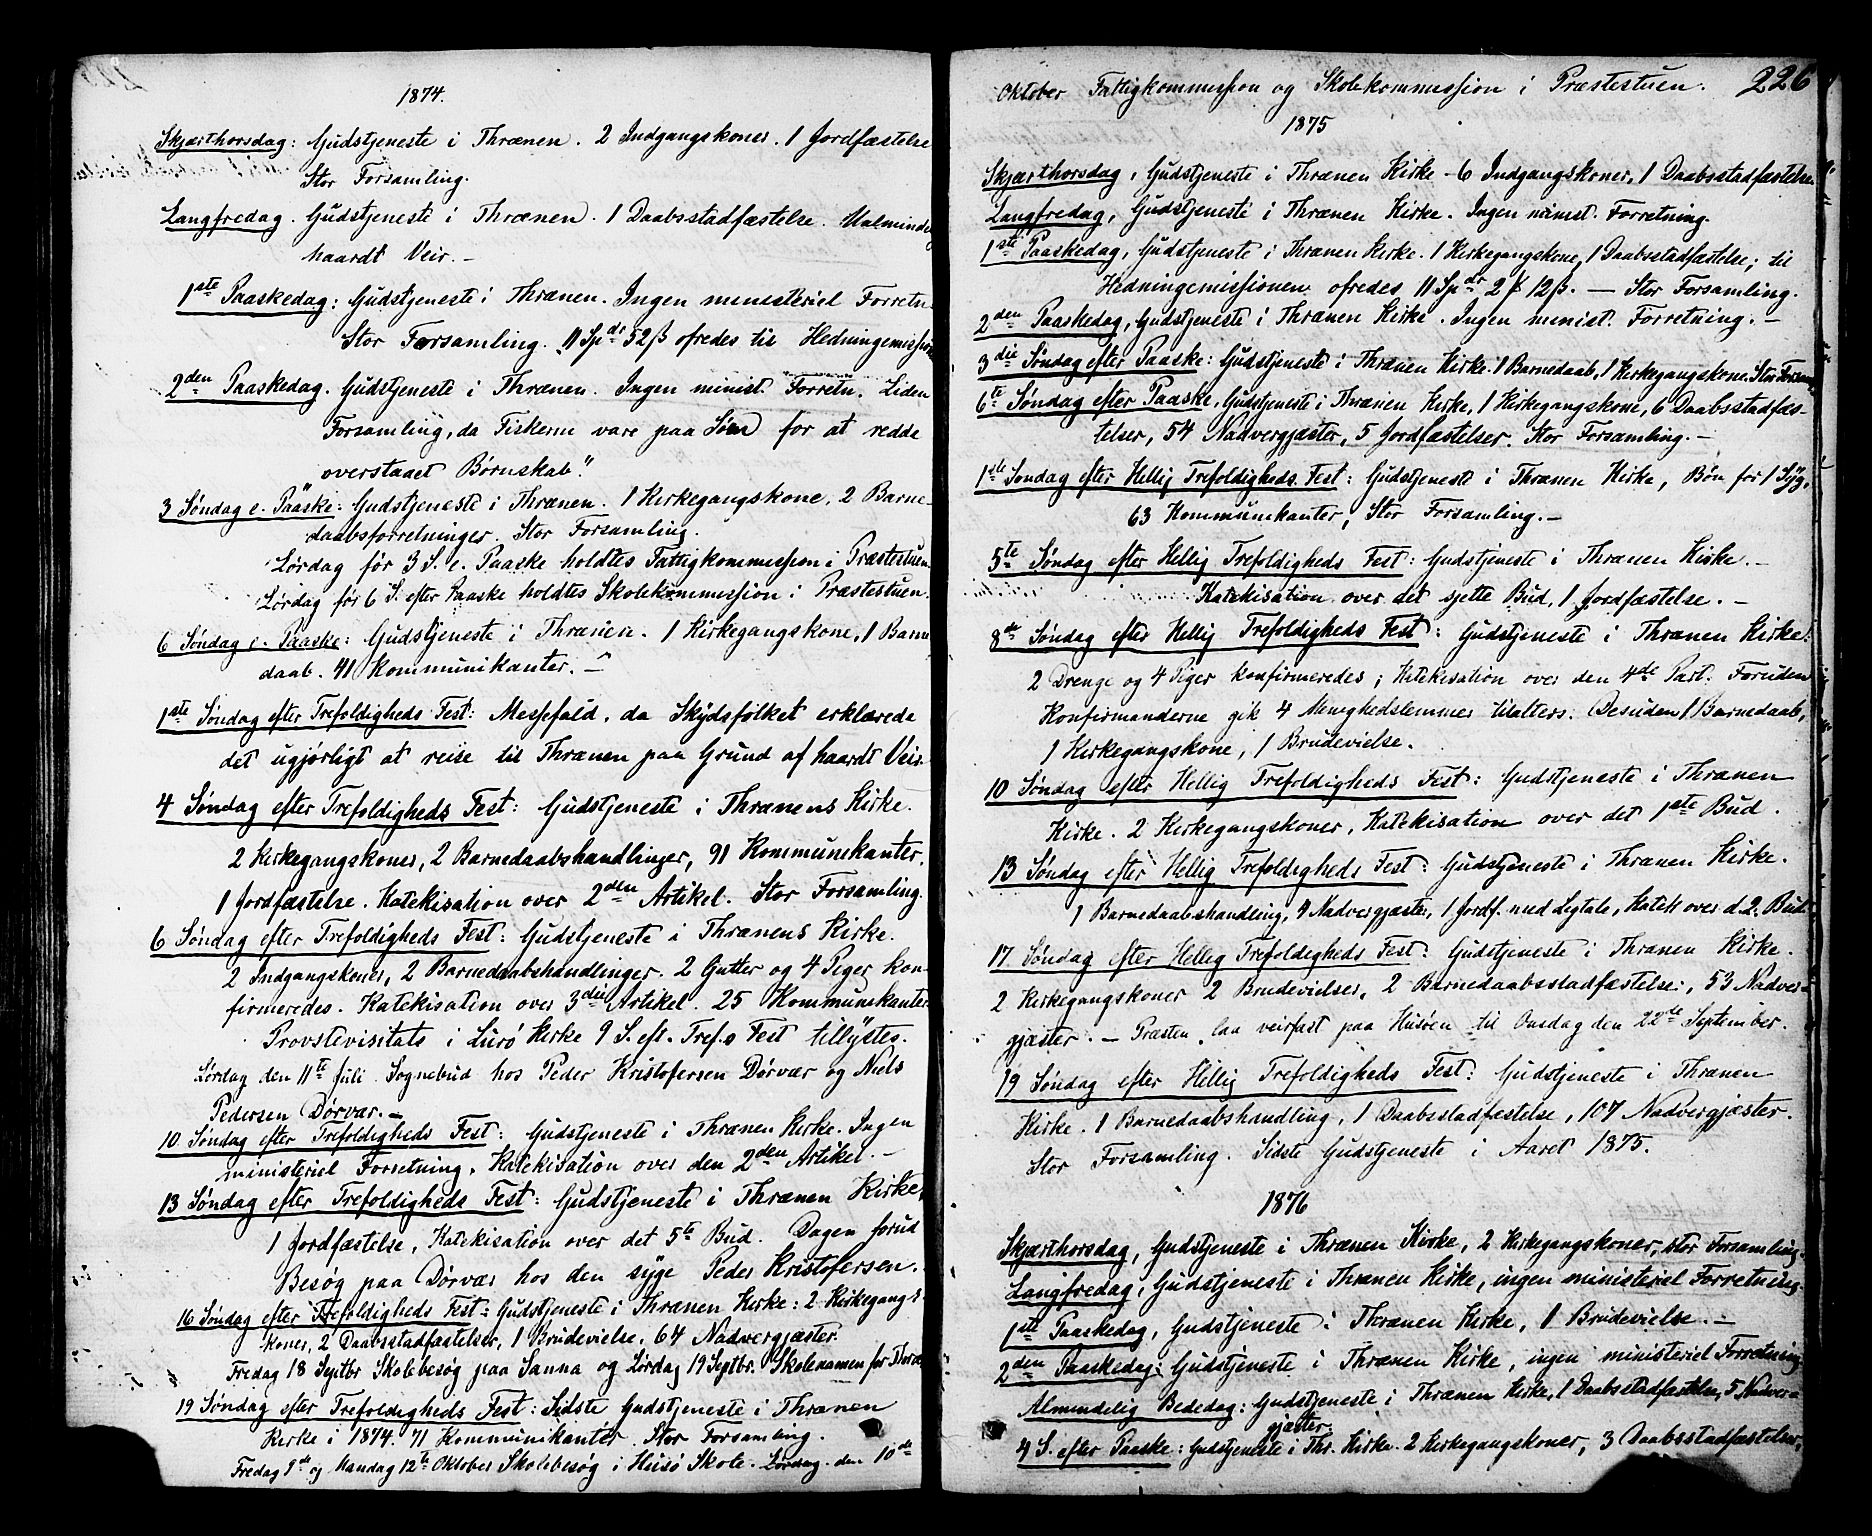 1874.
Skjærthorsdag: Gudstjeneste i Thrænen. 2 Indgangskoner. 1 Jordfæstelse
Stor Forsamling.
Langfredag. Gudstjeneste i Thrænen. 1 Daabsstadfæstelse. Ualmindelig
haardt Veir. —
1ste Paaskedag: Gudstjeneste i Thrænen. Ingen ministeriel Forretn.
Stor Forsamling. 11 Spdr 52 ß ofredes til Hedningemission
2den Paaskedag. Gudstjeneste i Thrænen. Ingen minist. Forretn. Liden
Forsamling, da Fiskerne vare paa Søen for at redde
overstaaet Børnskab".
3 Søndag e. Paaske: Gudstjeneste i Thrænen. 1 Kirkegangskone. 2 Barne-
daabsforretninger. Stor Forsamling.
Lørdag før 3 S. e. Paaske holdtes Fattigkommission i Præstestuen.
Lørdag før 6 S. efter Paaske holdtes Skolekommission i Præstestuen.
6 Søndag e. Paaske: Gudstjeneste i Thrænen. 1 Kirkegangskone, 1 Barne
daab. 41 Kommunikanter. —
1ste Søndag efter Trefoldigheds Fest: Messefald, da Skydsfolket erklærede
det ugjørligt at reise til Thrænen paa Grund af haardt Veir.
4 Søndag efter Trefoldigheds Fest: Gudstjeneste i Thrænens Kirke.
2 Kirkegangskoner, 2 Barnedaabshandlinger, 91 Kommunikanter.
1 Jordfæstelse. Katekisation over 2den Artikel. Stor Forsamling.
6 Søndag efter Trefoldigheds Fest: Gudstjeneste i Thrænens Kirke.
2 Indgangskoner, 2 Barnedaabshandlinger. 2 Gutter og 4 Piger kon-
firmeredes. Katekisation over 3die Artikel. 25 Kommunikanter
Provstevisitats i Lurø Kirke 9 S. eft. Tref.s Fest tillystes.
Lørdag den 11te Juli. Sognebud hos Peder Kristofersen Dørvær og Niels
Pedersen Dørvær. —
10. Søndag efter Trefoldigheds Fest: Gudstjeneste i Thrænen Kirke. Ingen
ministeriel Forretning. Katekisation over den 2den Artikel. —
13 Søndag efter Trefoldigheds Fest: Gudstjeneste i Thrænen Kirke,
1 Jordfæstelse, Katekisation over det 5te Bud. Dagen forud
Besøg paa Dørvær hos den syge Peder Kristofersen.
16 Søndag efter Trefoldigheds Fest: Gudstjeneste i Thrænen Kirke: 2 Kirkegangs-
koner, 2 Daabsstadfæstelser, 1 Brudevielse, 64 Nadvergjæster.
Fredag 18 Septbr Skolebesøg paa Sanna og Lørdag 19 Septbr. Skolexamen for
19 Søndag efter Trefoldigheds Fest: Sidste Gudstjeneste i Thrænen
Kirke i 1874. 71 Kommunikanter. Stor Forsamling.
Fredag 9de og Mandag 12te Oktober Skolebesøg i Husø Skole. Lørdag den 10de
Oktober Fattigkommission og Skolekommission i Præstestuen. 226
1875
Skjærthorsdag, Gudstjeneste i Thrænen Kirke - 6 Indgangskoner, 1 Daabsstadfæstelse.
Langfredag, Gudstjeneste i Thrænen Kirke. Ingen minist. Forretning.
1ste Paaskedag, Gudstjeneste i Thrænen Kirke. 1 Kirkegangskone, 1 Daabsstadfæstelse; til
Hedningemissionen ofredes 11 Spdr 2 ƒ 12 ß. — Stor Forsamling.
2den Paaskedag, Gudstjeneste i Thrænen Kirke. Ingen minist. Forretning. —
3die Søndag efter Paaske: Gudstjeneste i Thrænen Kirke. 1 Barnedaab, 1 Kirkegangskone. Stor Forsaml.
6te Søndag efter Paaske, Gudstjeneste i Thrænen Kirke, 1 Kirkegangskone, 6 Daabsstadfæs-
telser, 54 Nadvergjæster, 5 Jordfæstelser. Stor Forsamling. —
1ste Søndag efter Hellig Trefoldigheds Fest: Gudstjeneste i Thrænen Kirke, Bøn for 1 Syg,
63 Kommunikanter, Stor Forsamling. —
5te Søndag efter Hellig Trefoldigheds Fest: Gudstjeneste i Thrænen Kirke. —
Katekisation over det sjette Bud, 1 Jordfæstelse. —
8de Søndag efter Hellig Trefoldigheds Fest: Gudstjeneste i Thrænen Kirke:
2 Drenge og 4 Piger konfirmeredes; Katekisation over den 4de Part. Foruden
Konfirmanderne gik 4 Menighedslemmer til Alters. Desuden 1 Barnedaab,
1 Kirkegangskone, 1 Brudevielse.
10 Søndag efter Hellig Trefoldigheds Fest: Gudstjeneste i Thrænen
Kirke. 2 Kirkegangskoner, Katekisation over det 1ste Bud.
13 Søndag efter Hellig Trefoldigheds Fest: Gudstjeneste i Thrænen Kirke.
1 Barnedaabshandling, 4 Nadvergjæster, 1 Jordf. med Ligtale, Katek over d. 2. Bud.
17. Søndag efter Hellig Trefoldigheds Fest: Gudstjeneste i Thrænen Kirke.
2 Kirkegangskoner 2 Brudevielser, 2 Barnedaabsstadfæstelser, 53 Nadver-
gjæster. — Præsten laa veirfast paa Husøen til Onsdag den 22de September.
19 Søndag efter Hellig Trefoldigheds Fest: Gudstjeneste i Thrænen
Kirke. 1 Barnedaabshandling, 1 Daabsstadfæstelse, 107 Nadvergjæster.
Stor Forsamling. Sidste Gudstjeneste i Aaret 1875.
1876
Skjærthorsdag, Gudstjeneste i Thrænen Kirke, 2 Kirkegangskoner, stor Forsamling.
Langfredag, Gudstjeneste i Thrænen Kirke, ingen ministeriel Forretning.
1ste Paaskedag, Gudstjeneste i Thrænen Kirke, 1 Brudevielse. —
2den Paaskedag: Gudstjeneste i Thrænen Kirke, ingen ministeriel Forretning
Almindelig Bededag: Gudstjeneste i Thrænen Kirke, 1 Daabsstadfæstelse, 5 Nadver-
gjæster.
4 S. efter Paaske: Gudstjeneste i Thr. Kirke. 2 Kirkegangskoner, 3 Daabsstadfæstelser,